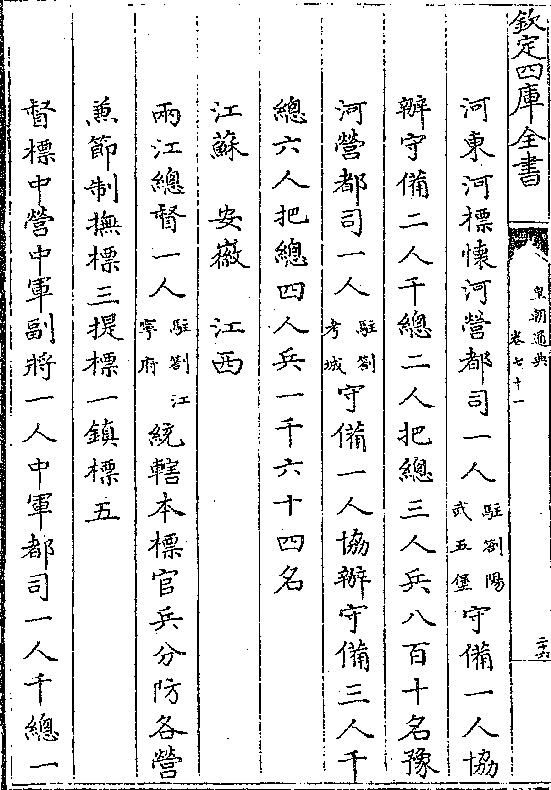 欽定四庫全書
皇朝通典
卷七十一
二十六
河東河標懷河營都司一人駐劄陽武五堡守備一人協
辦守備二人千總二人把總三人兵八百十名豫
河營都司一人駐劄考城守備一人協辦守備三人千
總六人把總四人兵一千六十四名
江蘇 安徽 江西
兩江總督一人駐劄江寧府統轄本標官兵分防各營
兼節制撫標三提標一鎮標五
督標中營中軍副將一人中軍都司一人千總一